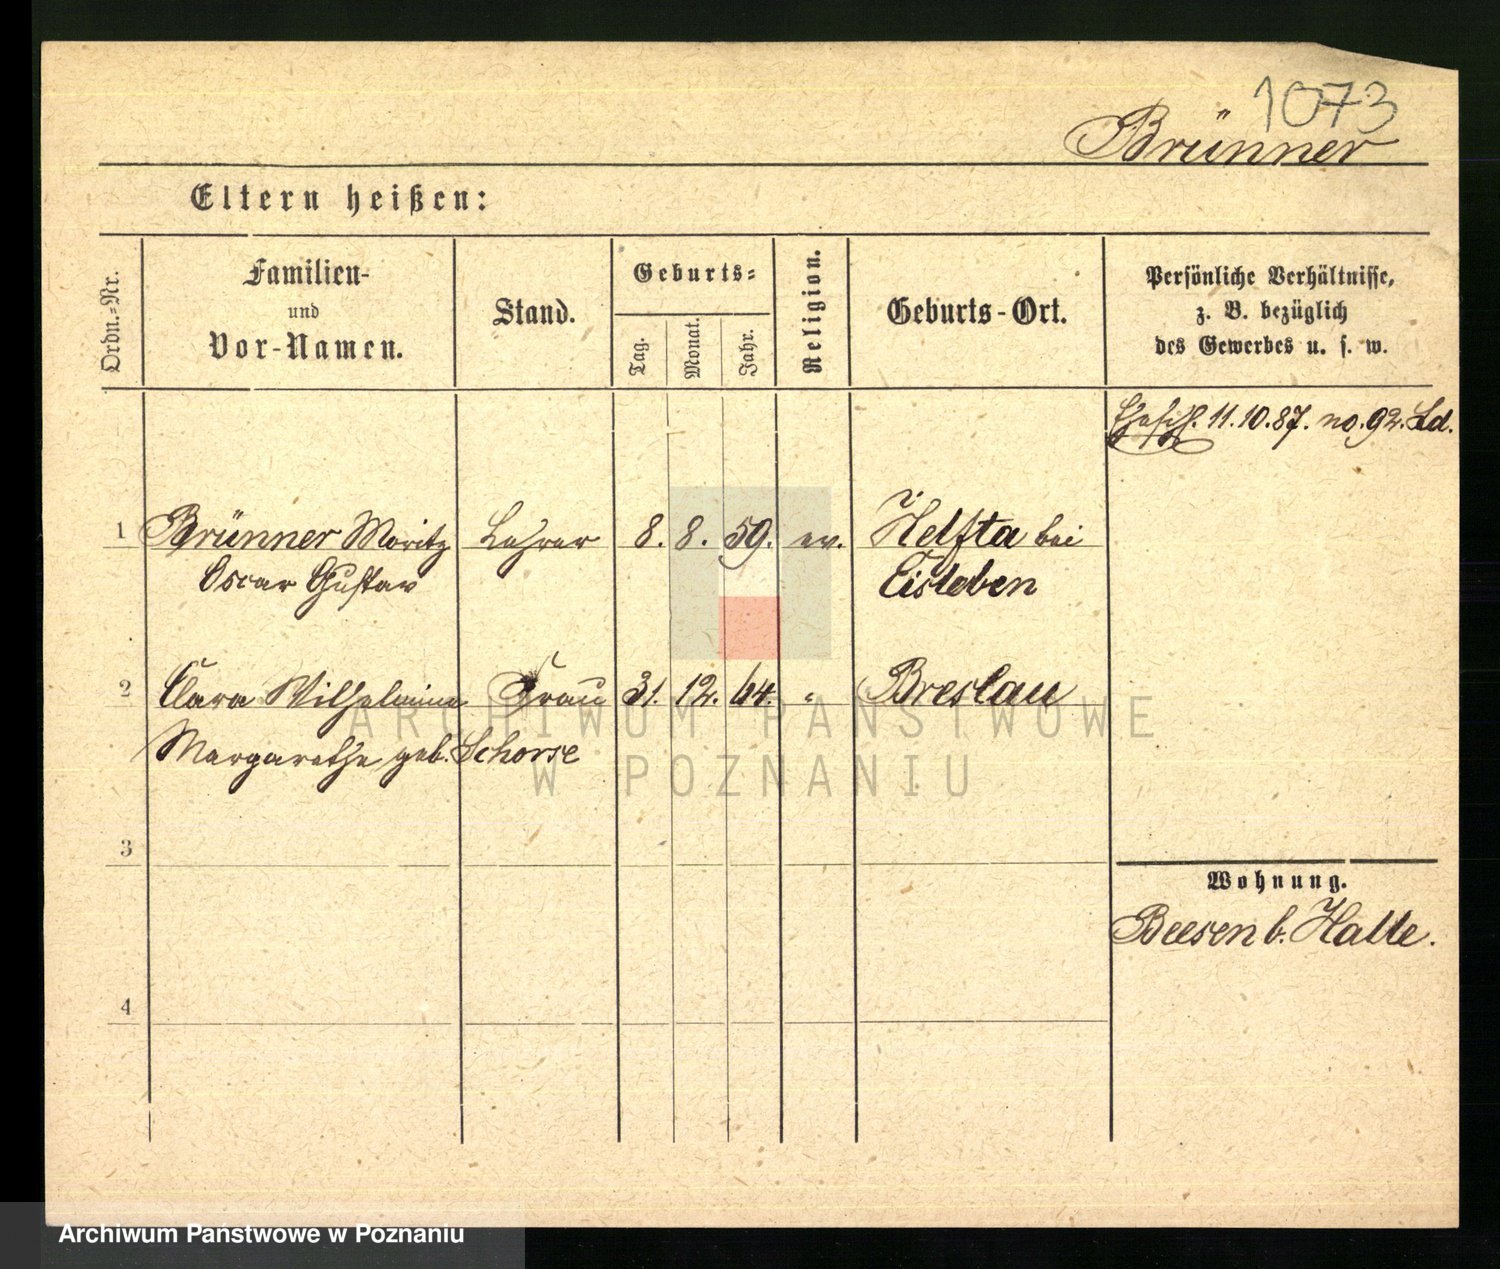 1073
Brünner
Eltern heißen:
Ordn.-Nr.
Familien-
und
Vor-Namen.
Stand.
Geburts-
Tag.
Monat.
Jahr.
Religion.
Geburts-Ort.
Persönliche Verhältnisse,
z. B. bezüglich
des Gewerbes u. s. w.
Ehesch. 11.10.87. no. 92. Ld.
1 Brünner Moritz Lehrer 8. 8. 59. ev. Helfta bei
Oscar Gustav Eisleben
2 Clara Wilhelmine Frau 31. 12. 64. " Breslau
Margarethe geb. Schorse
ARCHIWUM PAŃSTWOWE
W POZNANIU
3
Wohnung.
Beesen b. Halle.
4
Archiwum Państwowe w Poznaniu